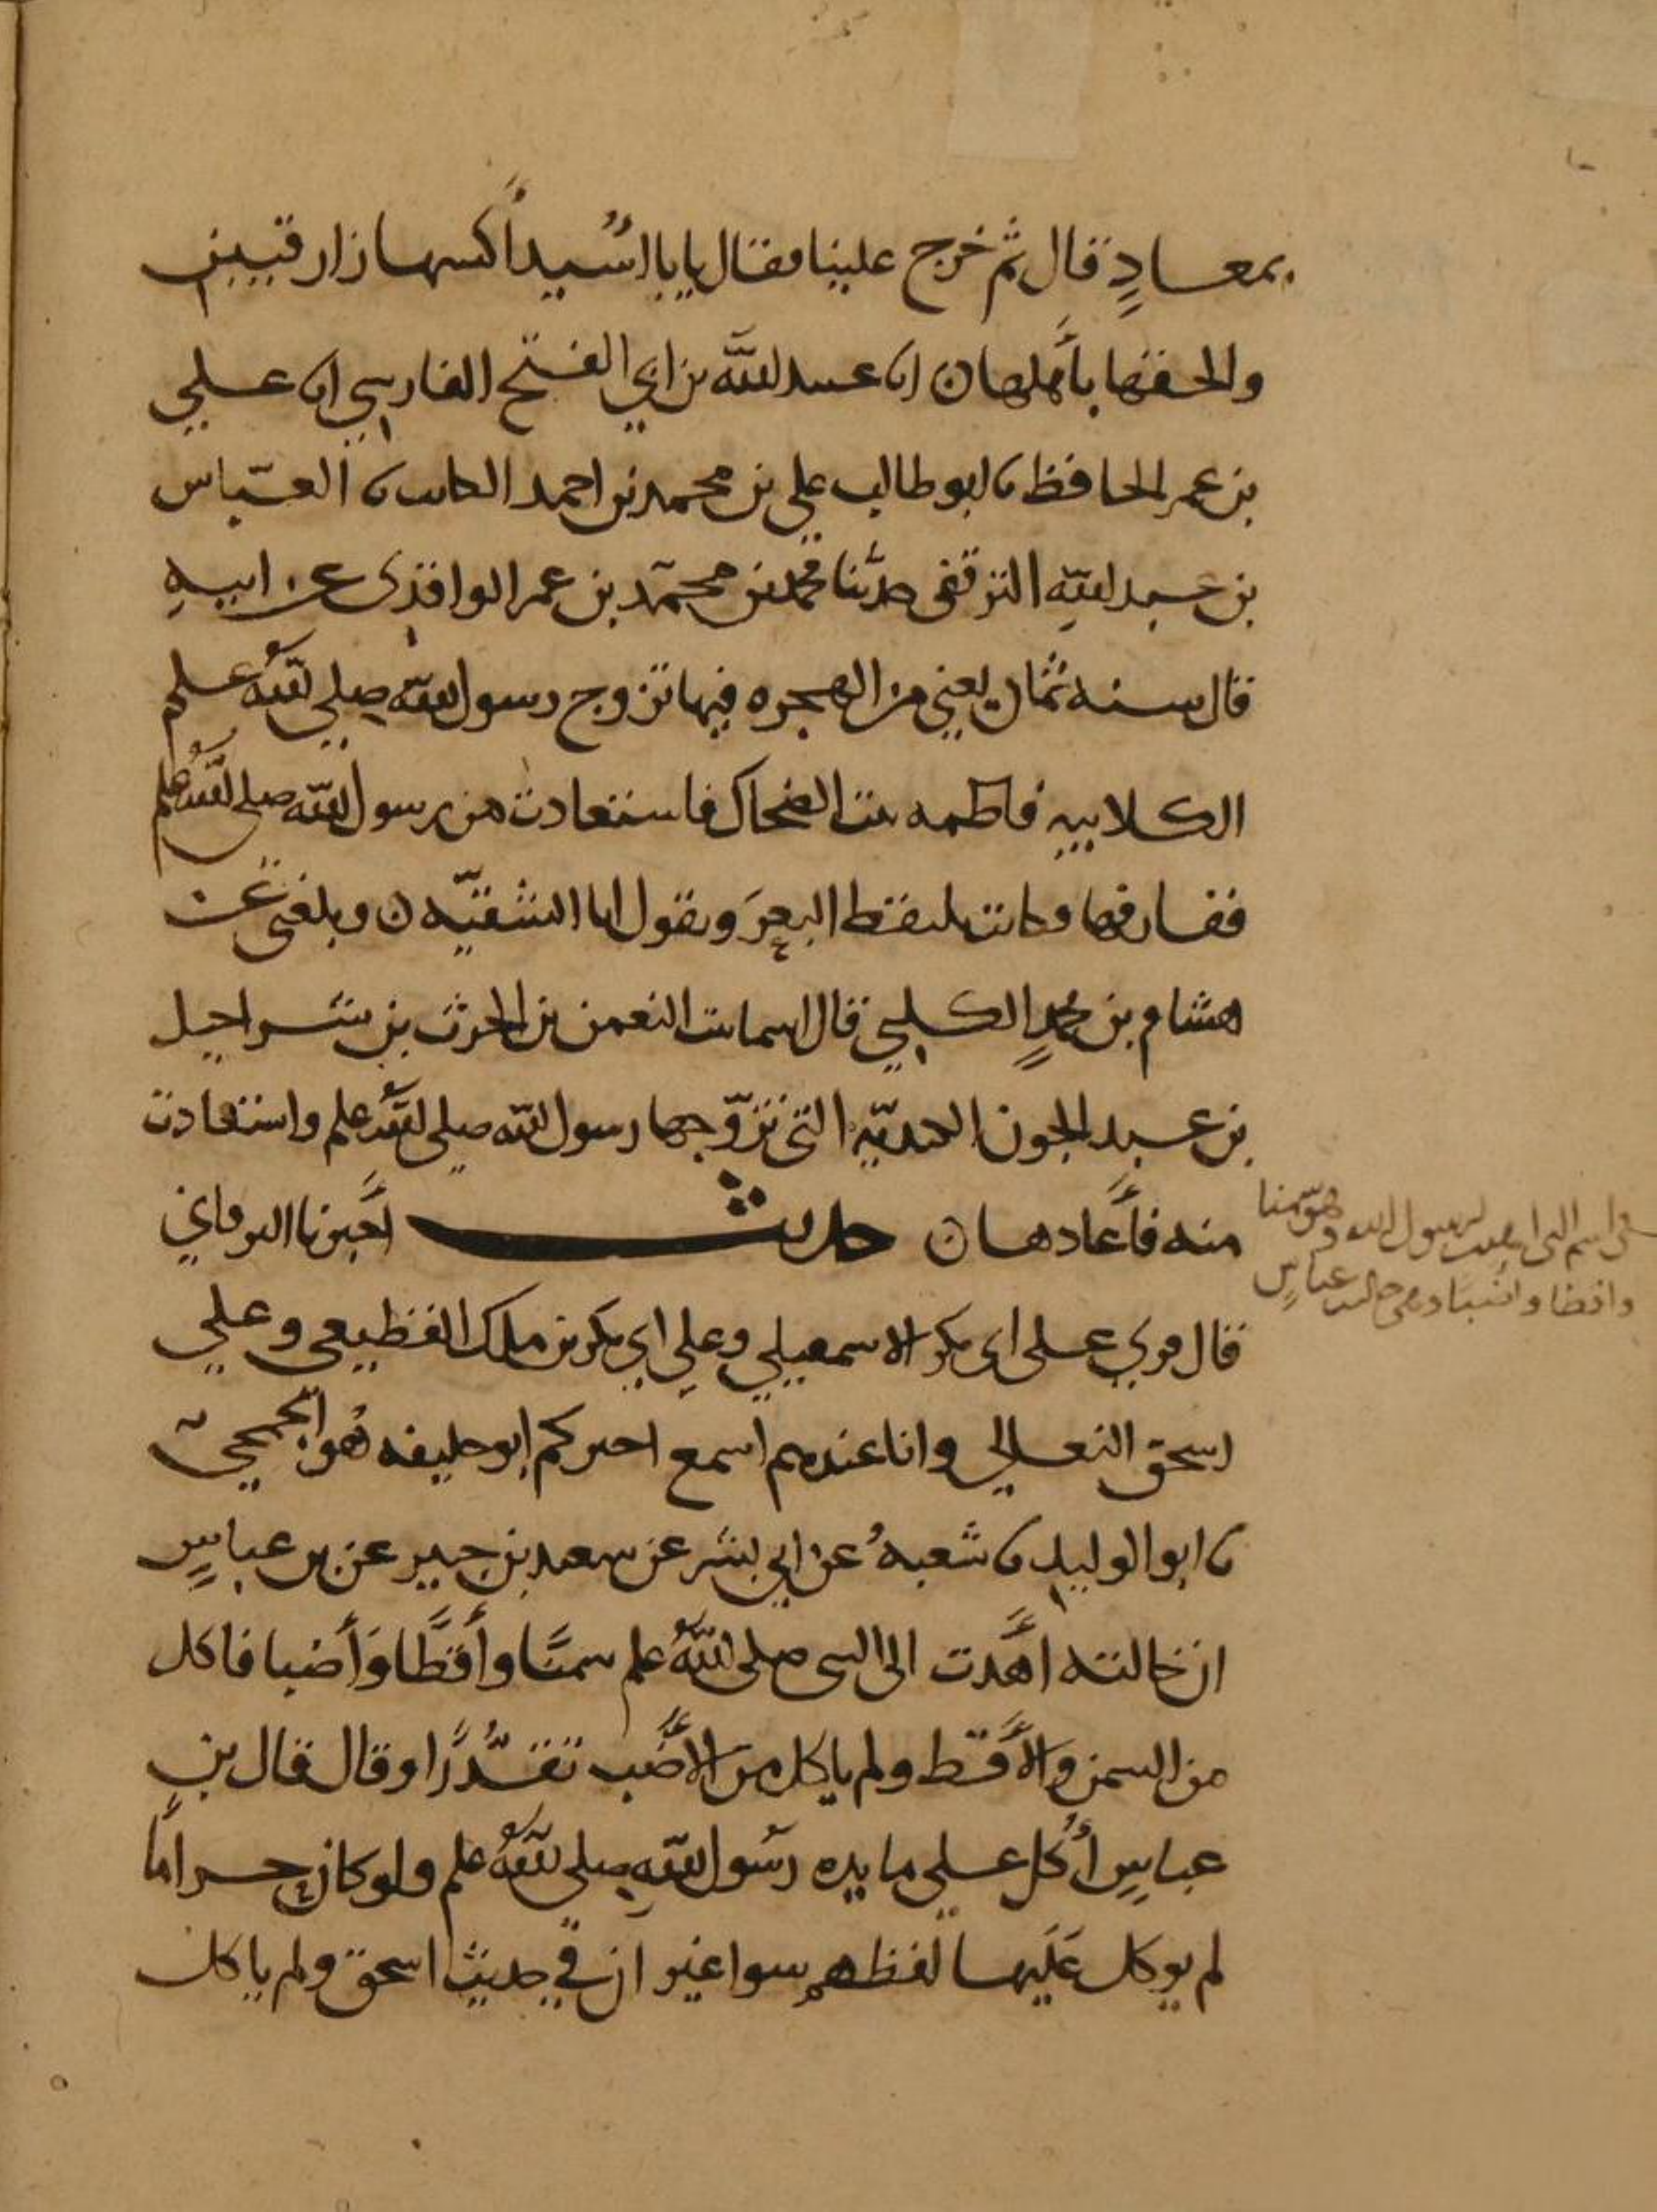 بمعاذٍ قال ثم خرج علينا فقال يا با اُسُيد اكسها رازقيين
والحقها بأهلها ن انا عبيد الله بن ابي الفتح الفارسي انا علي
بن عمر الحافظ نا ابو طالب علي بن محمد بن احمد الكاتب نا العباس
بن عبد الله الترقفي حدثنا محمد بن محمد بن عمر الواقدي عن ابيه
قال سنه ثمان يعني من الهجره فيها تزوج رسول الله صلى الله علم
الكلابيه فاطمه بنت الضحاك فاستعاذت من رسول الله صلى الله علم
ففارقها وكانت تلتقط البعرَ وتقول انا الشقيّه ن وبلغني عن
هشام بن محمدٍ الكلبي قال اسما بنت النعمن بن الحرث بن شراحيل
بن عبيد الجون الكنديّه التي تزوّجها رسول الله صلى الله علم واستعاذت
منه فأعاذها ن حديث أخبرنا البرقاني
في اسم التي اهدت لرسول الله وهو سمنا
واقطا واضبا وهي خاله ابن عباس
قال قري على ابي بكر الاسمعيلي وعلى ابي بكر بن ملك القطيعي وعلي
اسحق النعالي وانا عندهم اسمع اخبركم ابو خليفه هو الجمحي
نا ابو الوليد نا شعبهُ عن ابي بشر عن سعيد بن جبير عن بن عباسٍ
ان خالته اهدت الى النبي صلى الله علم سمنًا وأقطًا وَأضبا فاكل
من السمن والأقط ولم ياكل من الأضب تقذُّرًا وقال قال بن
عباسٍ أُكل على مايده رسول الله صلى الله علم ولو كان حراما
لم يوكل عَلَيها لفظهم سوا غير ان في حديث اسحق ولم ياكل